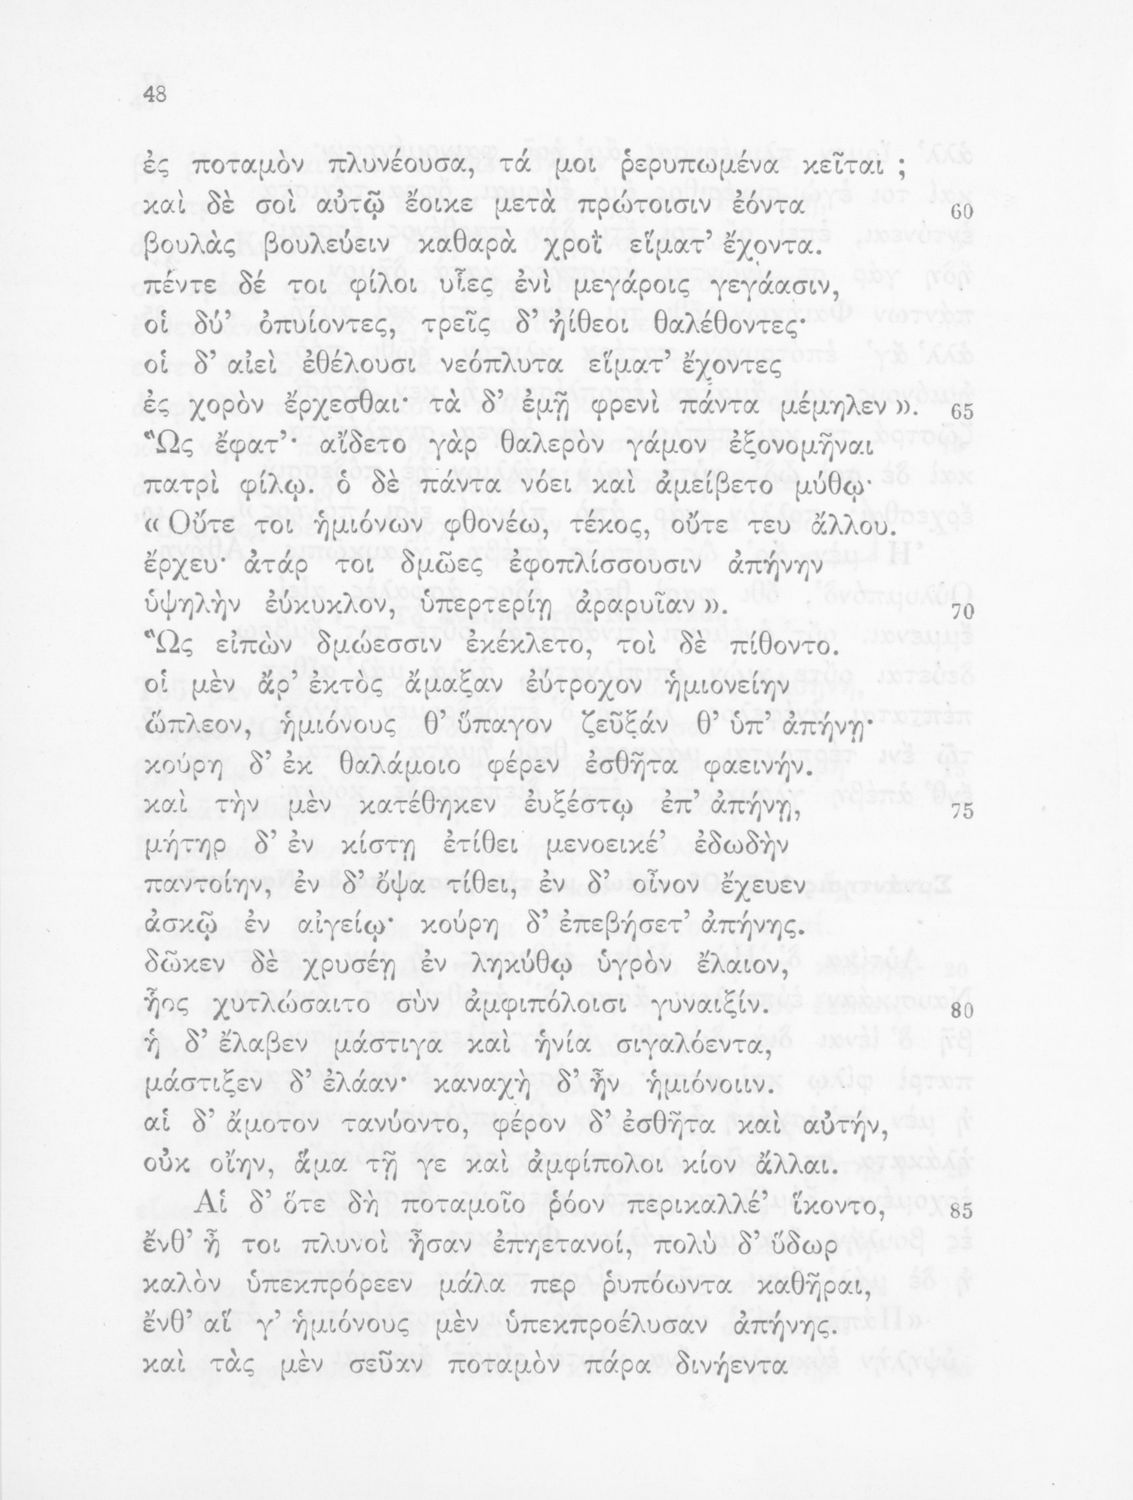 48
ἐς ποταμὸν πλυνέουσα, τά μοι ῥερυπωμένα κεῖται ;
καὶ δὲ σοὶ αὐτῷ ἔοικε μετὰ πρώτοισιν ἐόντα 60
βουλὰς βουλεύειν καθαρὰ χροῒ εἵματ’ ἔχοντα.
πέντε δέ τοι φίλοι υἷες ἐνὶ μεγάροις γεγάασιν,
οἱ δύ’ ὀπυίοντες, τρεῖς δ’ ἠίθεοι θαλέθοντες·
οἱ δ’ αἰεὶ ἐθέλουσι νεόπλυτα εἵματ’ ἔχοντες
ἐς χορὸν ἔρχεσθαι· τὰ δ’ ἐμῇ φρενὶ πάντα μέμηλεν ». 65
Ὣς ἔφατ’· αἴδετο γὰρ θαλερὸν γάμον ἐξονομῆναι
πατρὶ φίλῳ. ὁ δὲ πάντα νόει καὶ ἀμείβετο μύθῳ·
« Οὔτε τοι ἡμιόνων φθονέω, τέκος, οὔτε τευ ἄλλου.
ἔρχευ· ἀτάρ τοι δμῶες ἐφοπλίσσουσιν ἀπήνην
ὑψηλὴν ἐύκυκλον, ὑπερτερίῃ ἀραρυῖαν ». 70
Ὣς εἰπὼν δμώεσσιν ἐκέκλετο, τοὶ δὲ πίθοντο.
οἱ μὲν ἄρ’ ἐκτὸς ἄμαξαν ἐύτροχον ἡμιονείην
ὥπλεον, ἡμιόνους θ’ ὕπαγον ζεῦξάν θ’ ὑπ’ ἀπήνῃ·
κούρη δ’ ἐκ θαλάμοιο φέρεν ἐσθῆτα φαεινήν.
καὶ τὴν μὲν κατέθηκεν ἐυξέστῳ ἐπ’ ἀπήνῃ, 75
μήτηρ δ’ ἐν κίστῃ ἐτίθει μενοεικέ’ ἐδωδὴν
παντοίην, ἐν δ’ ὄψα τίθει, ἐν δ’ οἶνον ἔχευεν
ἀσκῷ ἐν αἰγείῳ· κούρη δ’ ἐπεβήσετ’ ἀπήνης.
δῶκεν δὲ χρυσέῃ ἐν ληκύθῳ ὑγρὸν ἔλαιον,
ἧος χυτλώσαιτο σὺν ἀμφιπόλοισι γυναιξίν. 80
ἡ δ’ ἔλαβεν μάστιγα καὶ ἡνία σιγαλόεντα,
μάστιξεν δ’ ἐλάαν· καναχὴ δ’ ἦν ἡμιόνοιιν.
αἱ δ’ ἄμοτον τανύοντο, φέρον δ’ ἐσθῆτα καὶ αὐτήν,
οὐκ οἴην, ἅμα τῇ γε καὶ ἀμφίπολοι κίον ἄλλαι.
Αἱ δ’ ὅτε δὴ ποταμοῖο ῥόον περικαλλέ’ ἵκοντο, 85
ἔνθ’ ἦ τοι πλυνοὶ ἦσαν ἐπηετανοί, πολὺ δ’ ὕδωρ
καλὸν ὑπεκπρόρεεν μάλα περ ῥυπόωντα καθῆραι,
ἔνθ’ αἵ γ’ ἡμιόνους μὲν ὑπεκπροέλυσαν ἀπήνης.
καὶ τὰς μὲν σεῦαν ποταμὸν πάρα δινήεντα